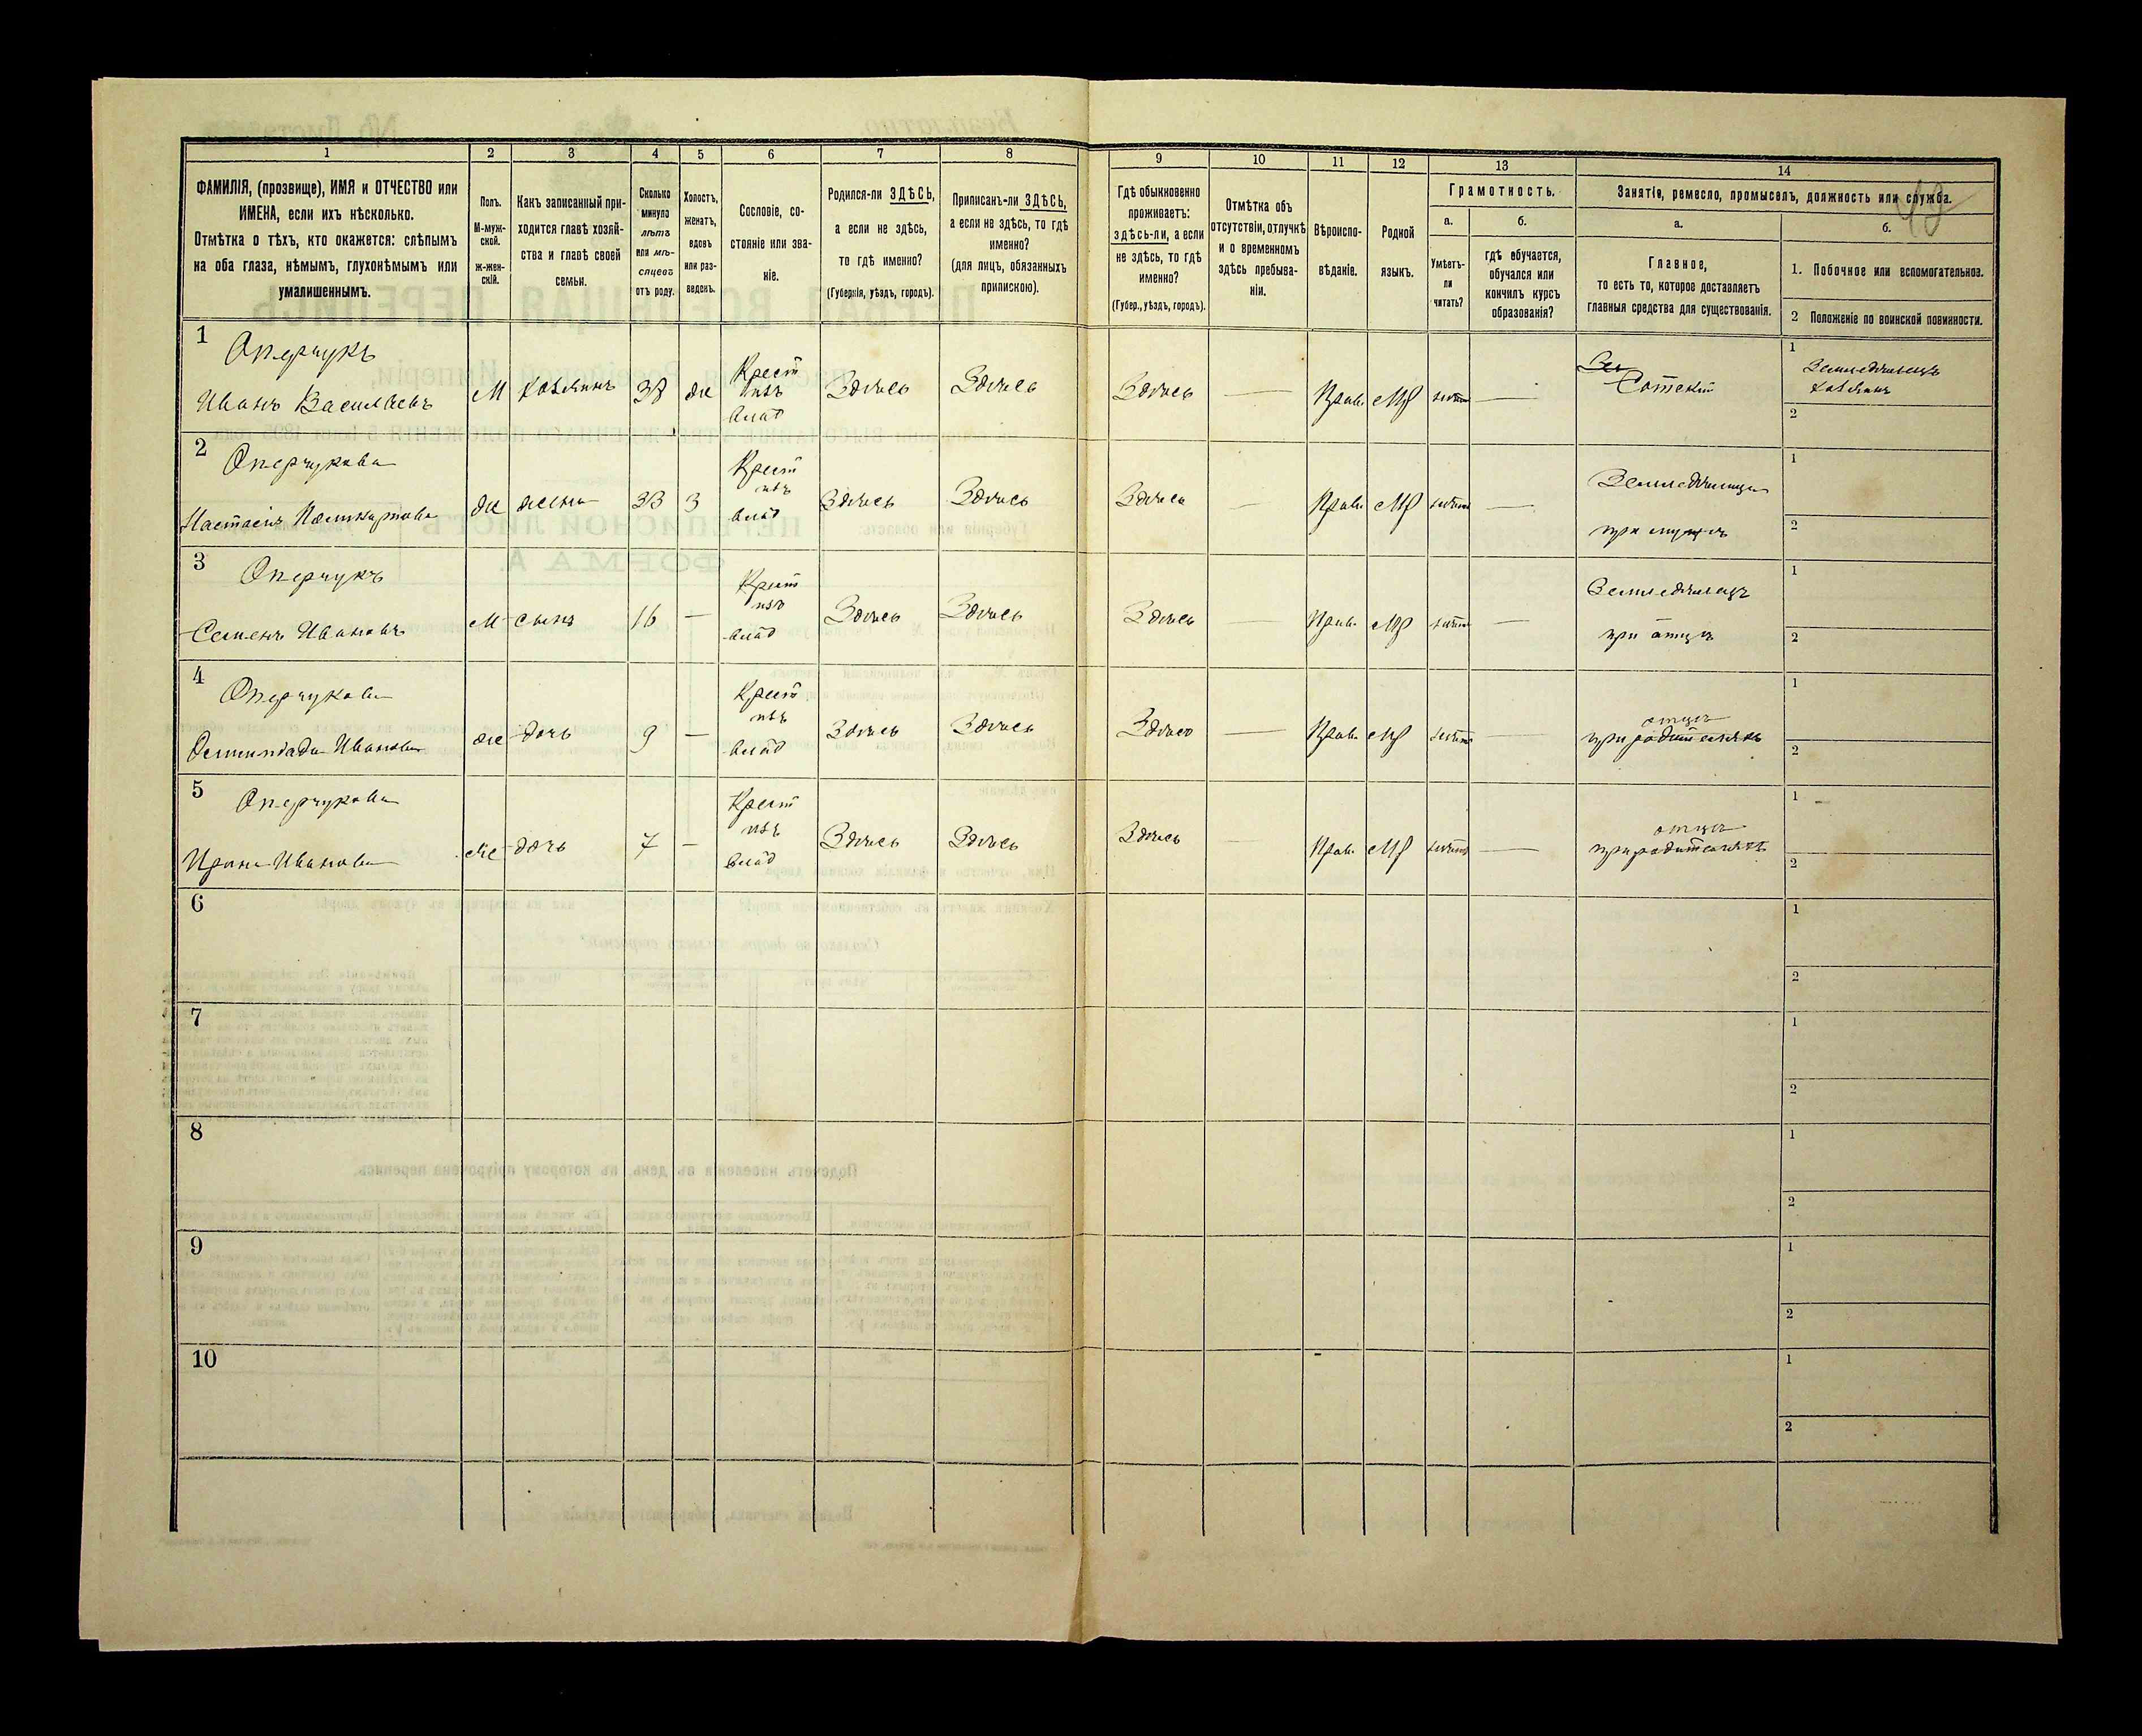 1
2
3
4
5
6
7
8
9
10
11
12
13
14
ФАМИЛІЯ, (прозвище), ИМЯ и ОТЧЕСТВО или
ИМЕНА, если ихъ нѣсколько.
Отмѣтка о тѣхъ, кто окажется: слѣпымъ
на оба глаза, нѣмымъ, глухонѣмымъ или
умалишеннымъ.
Полъ.
М-муж-
ской.
Ж-жен-
скій.
Какъ записанный при-
ходится главѣ хозяй-
ства и главѣ своей
семьи.
Сколько
минуло
лѣтъ
или мѣ-
сяцевъ
отъ роду.
Холостъ,
женатъ,
вдовъ
или раз-
веденъ.
Сословіе, со-
стояніе или зва-
ніе.
Родился-ли ЗДѢСЬ,
а если не здѣсь,
то гдѣ именно?
(Губернія, уѣздъ, городъ).
Приписанъ-ли ЗДѢСЬ,
а если не здѣсь, то гдѣ
именно?
(для лицъ, обязанныхъ
припискою).
Гдѣ обыкновенно
проживаетъ:
здѣсь-ли, а если
не здѣсь, то гдѣ
именно?
(Губер., уѣздъ, городъ).
Отмѣтка объ
отсутствіи, отлучкѣ
и о временномъ
здѣсь пребыва-
ніи.
Вѣроиспо-
вѣданіе.
Родной
языкъ.
Грамотность.
а.
Умѣетъ-
ли
читать?
б.
гдѣ обучается,
обучался или
кончилъ курсъ
образованія?
Занятіе, ремесло, промыселъ, должность или служба.
а.
Главное,
то есть то, которое доставляетъ
главныя средства для существованія.
б.
1. Побочное или вспомогательное.
2 Положеніе по воинской повинности.
1
Оперчукъ
Иванъ Васильевъ
М
хозяинъ
38
же
Крест
изъ
влад
Здѣсь
Здѣсь
Здѣсь
—
Прав.
МР
—
Сотскій
1
Земледѣлецъ
хозяинъ
2
2
Оперчукова
Же
жена
33
З
Крест
изъ
влад
Здѣсь
Здѣсь
Здѣсь
—
Прав.
МР
—
Земледѣлица
при мужѣ
1
2
3
Оперчукъ
Семенъ Ивановъ
М
сынъ
16
—
Крест
изъ
влад
Здѣсь
Здѣсь
Здѣсь
—
Прав.
МР
—
Земледѣлецъ
при отцѣ
1
2
4
Оперчукова
Иванова
же
дочь
9
—
Крест
изъ
влад
Здѣсь
Здѣсь
Здѣсь
—
Прав.
МР
—
отцѣ
при родителяхъ
1
2
5
Оперчукова
Ирина Иванова
же
дочь
7
—
Крест
изъ
влад
Здѣсь
Здѣсь
Здѣсь
—
Прав.
МР
—
отцѣ
при родителяхъ
1
2
6
1
2
7
1
2
8
1
2
9
1
2
10
1
2